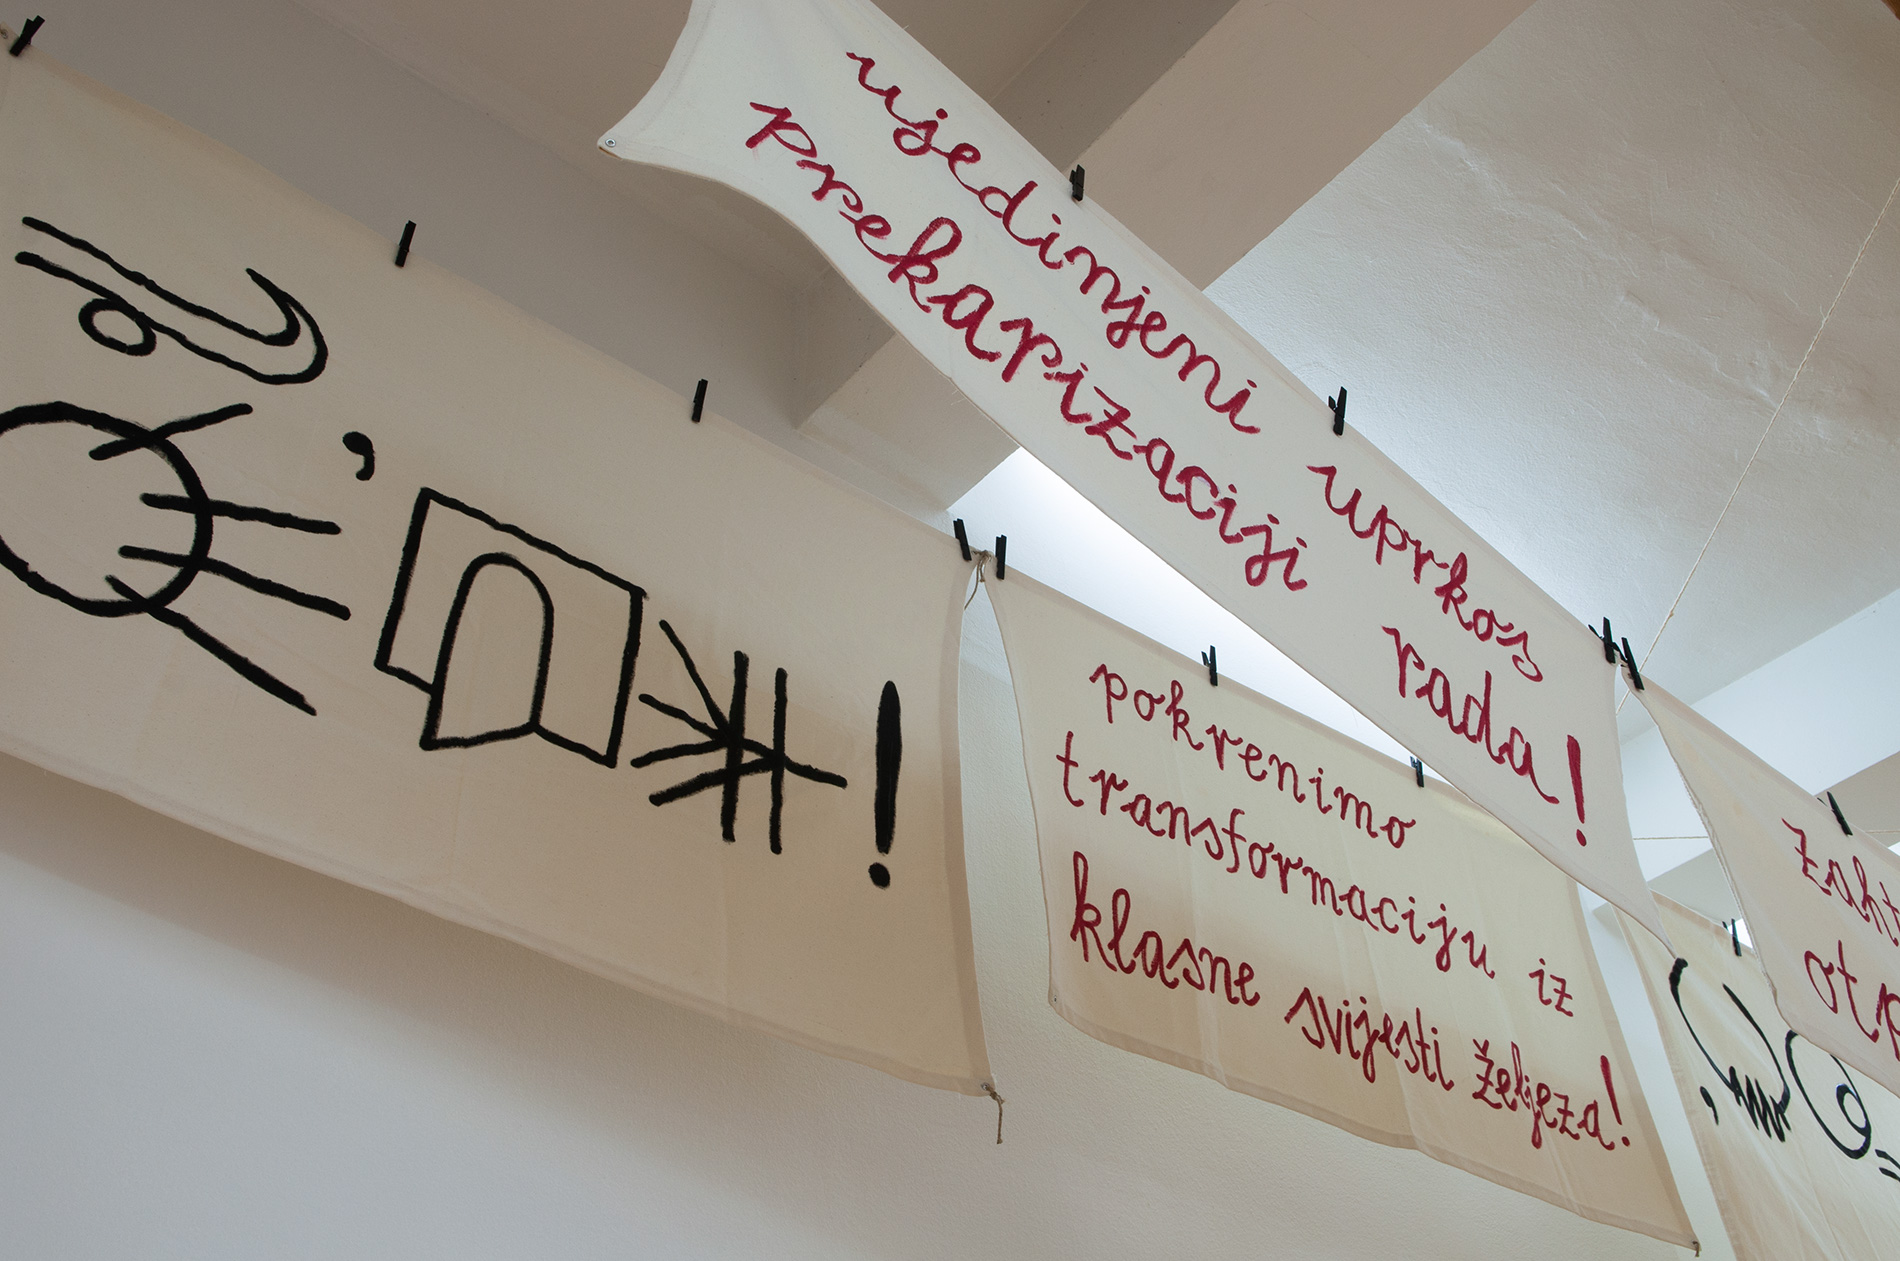 ujedinjeni uprkos
prekarizaciji rada!
pokrenimo
transformaciju iz
klasne svijesti željeza!